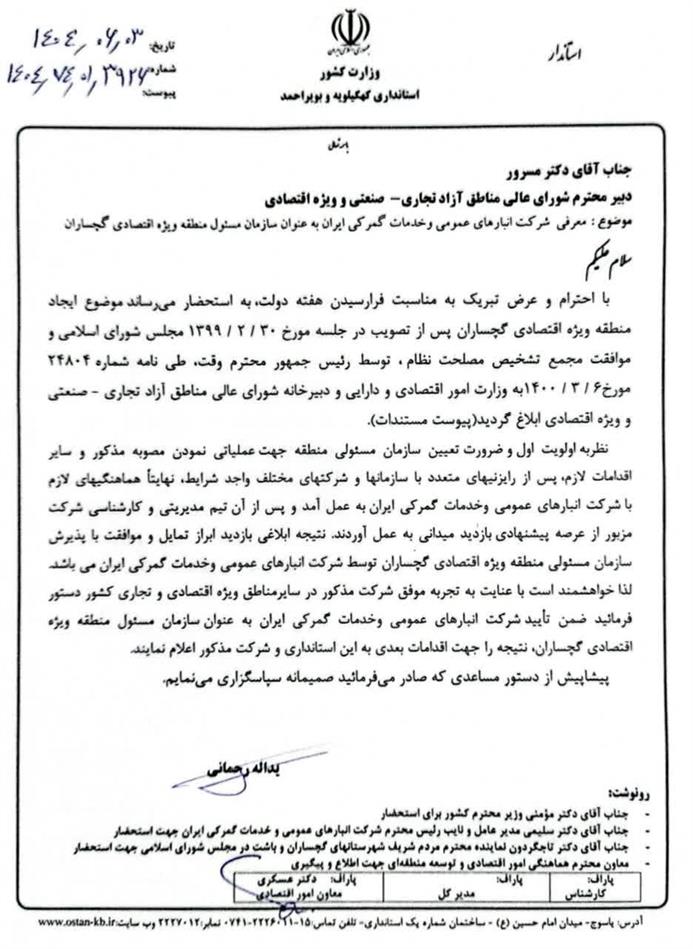 استاندار
جمهوری اسلامی ایران
وزارت کشور
استانداری کهگیلویه و بویراحمد
تاریخ: ۱۴۰۴٫۰۶٫۰۳
شماره: ۱۴۰۴٫۷۴٫۰۱٫۳۹۲۷
پیوست:
باسمه تعالی
جناب آقای دکتر مسرور
دبیر محترم شورای عالی مناطق آزاد تجاری– صنعتی و ویژه اقتصادی
موضوع : معرفی شرکت انبارهای عمومی وخدمات گمرکی ایران به عنوان سازمان مسئول منطقه ویژه اقتصادی گچساران
سلام علیکم
با احترام و عرض تبریک به مناسبت فرارسیدن هفته دولت، به استحضار می‌رساند موضوع ایجاد
منطقه ویژه اقتصادی گچساران پس از تصویب در جلسه مورخ ۳۰ / ۲ / ۱۳۹۹ مجلس شورای اسلامی و
موافقت مجمع تشخیص مصلحت نظام ، توسط رئیس جمهور محترم وقت، طی نامه شماره ۲۴۸۰۴
مورخ۶ / ۳ / ۱۴۰۰به وزارت امور اقتصادی و دارایی و دبیرخانه شورای عالی مناطق آزاد تجاری – صنعتی
و ویژه اقتصادی ابلاغ گردید(پیوست مستندات).
نظربه اولویت اول و ضرورت تعیین سازمان مسئولی منطقه جهت عملیاتی نمودن مصوبه مذکور و سایر
اقدامات لازم، پس از رایزنیهای متعدد با سازمانها و شرکتهای مختلف واجد شرایط، نهایتاً هماهنگیهای لازم
با شرکت انبارهای عمومی وخدمات گمرکی ایران به عمل آمد و پس از آن تیم مدیریتی و کارشناسی شرکت
مزبور از عرصه پیشنهادی بازدید میدانی به عمل آوردند. نتیجه ابلاغی بازدید ابراز تمایل و موافقت با پذیرش
سازمان مسئولی منطقه ویژه اقتصادی گچساران توسط شرکت انبارهای عمومی وخدمات گمرکی ایران می باشد.
لذا خواهشمند است با عنایت به تجربه موفق شرکت مذکور در سایرمناطق ویژه اقتصادی و تجاری کشور دستور
فرمائید ضمن تأیید شرکت انبارهای عمومی وخدمات گمرکی ایران به عنوان سازمان مسئول منطقه ویژه
اقتصادی گچساران، نتیجه را جهت اقدامات بعدی به این استانداری و شرکت مذکور اعلام نمایند.
پیشاپیش از دستور مساعدی که صادر می‌فرمائید صمیمانه سپاسگزاری می‌نمایم.
یداله رحمانی
رونوشت:
- جناب آقای دکتر مؤمنی وزیر محترم کشور برای استحضار
- جناب آقای دکتر سلیمی مدیر عامل و نایب رئیس محترم شرکت انبارهای عمومی و خدمات گمرکی ایران جهت استحضار
- جناب آقای دکتر تاجگردون نماینده محترم مردم شریف شهرستانهای گچساران و باشت در مجلس شورای اسلامی جهت استحضار
- معاون محترم هماهنگی امور اقتصادی و توسعه منطقه‌ای جهت اطلاع و پیگیری
پاراف: کارشناس
پاراف: مدیر کل
پاراف: دکتر عسکری معاون امور اقتصادی
آدرس: یاسوج- میدان امام حسین (ع) – ساختمان شماره یک استانداری– تلفن تماس:۱۵-۲۲۲۶۰۱۱-۰۷۴۱ نمابر:۲۲۲۷۰۱۲ وب سایت:www.ostan-kb.ir